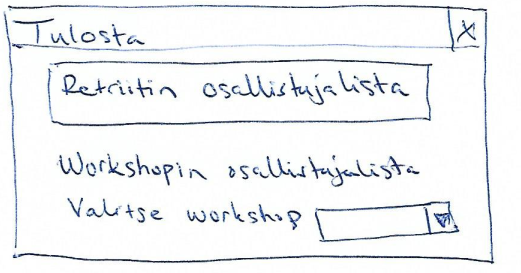 Tulosta X
Retriitin osallistujalista
Workshopin osallistujalista
Valitse workshop